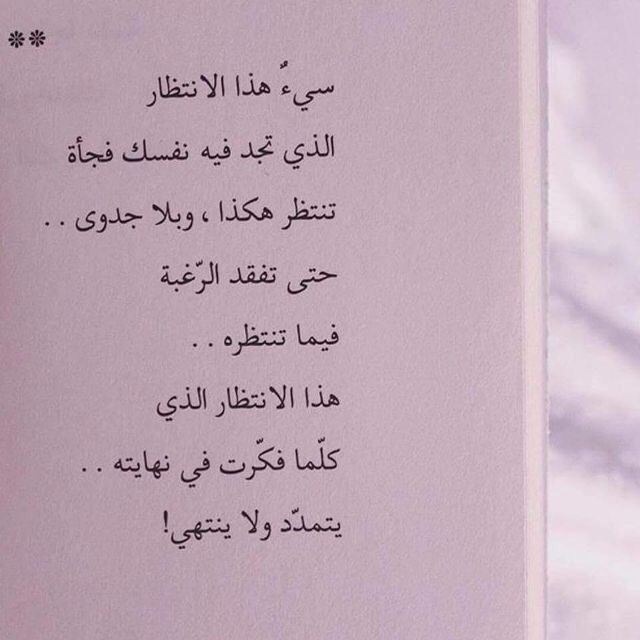 **
سيءٌ هذا الانتظار
الذي تجد فيه نفسك فجأة
تنتظر هكذا ، وبلا جدوى . .
حتى تفقد الرّغبة
فيما تنتظره . .
هذا الانتظار الذي
كلّما فكّرت في نهايته . .
يتمدّد ولا ينتهي!